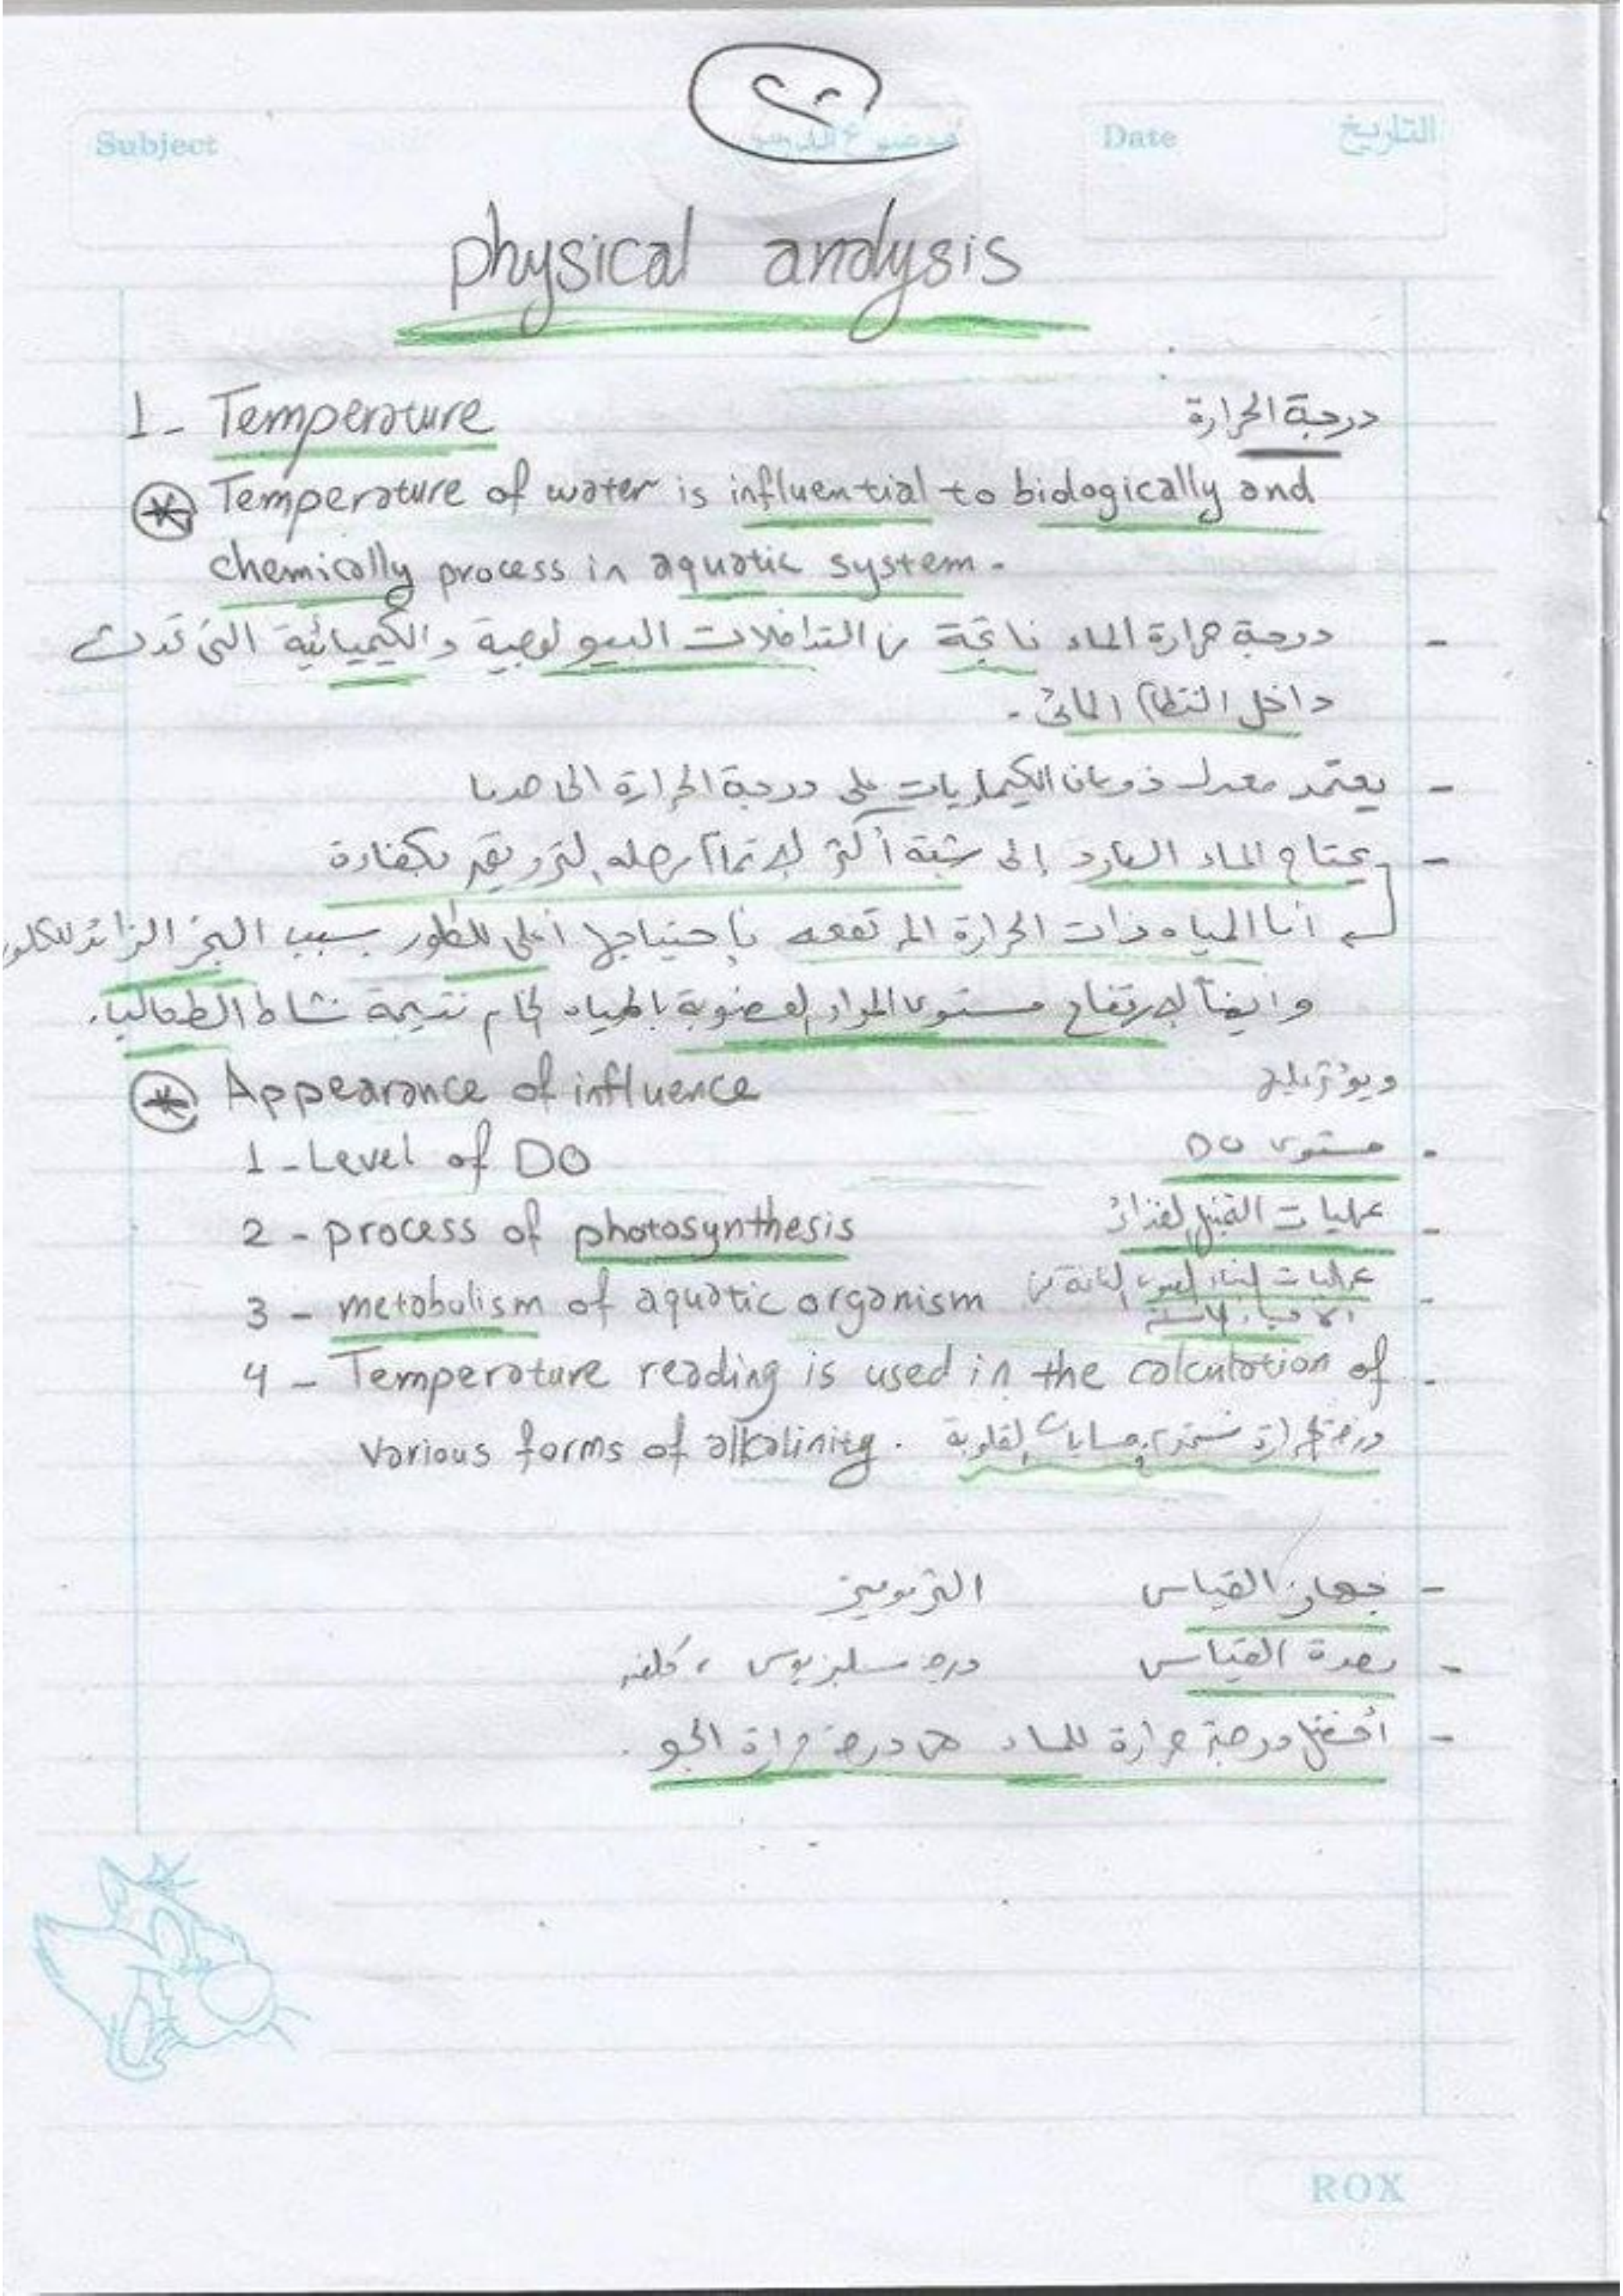 Subject
Date التاريخ
physical analysis
1- Temperature درجة الحرارة
Temperature of water is influential to biologically and
chemically process in aquatic system.
- درجة حرارة الماء ناتجة من التداخلات البيولوجية والكيميائية التى تحدث
داخل النظام المائى.
- يعتمد معدل ذوبان الكيماويات على درجة الحرارة الى حد ما
- يحتاج الماء البارد إلى شبة أكثر لإتمام بكفاءة
أما المياه ذات الحرارة المرتفعه فإحتياجها أعلى للكلور بسبب البخر الزائد للكلور
وايضاً لإرتفاع مستوى المواد العضوية بالمياه الخام نتيجة نشاط الطحالب.
Appearance of influence ويؤثر على
1-Level of DO مستوى DO
2- process of photosynthesis عمليات التمثيل الغذائى
3- metabolism of aquatic organism عمليات البناء
4- Temperature reading is used in the calculation of
Various forms of alkalinity.
- جهاز القياس الترمومتر
- وحدة القياس درجة سليزيوس ، كلفن
- أفضل درجة حرارة للماء هى درجة حرارة الجو.
ROX